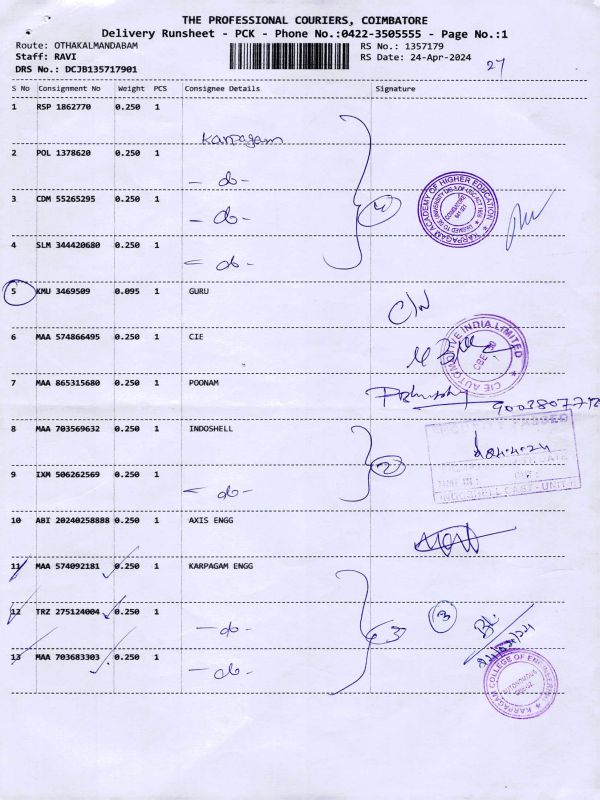 THE PROFESSIONAL COURIERS, COIMBATORE
Delivery Runsheet - PCK - Phone No.:0422-3505555 - Page No.:1
Route: OTHAKALMANDABAM RS No.: 1357179
Staff: RAVI RS Date: 24-Apr-2024 27
DRS No.: DCJB135717901
S No Consignment No Weight PCS Consignee Details Signature
1 RSP 1862770 0.250 1
Karpagam
2 POL 1378620 0.250 1
- do -
3 CDM 55265295 0.250 1
- do -
4
KARPAGAM ACADEMY OF HIGHER EDUCATION
4 SLM 344420680 0.250 1
- do -
5 KMU 3469509 0.095 1 GURU
C/N
6 MAA 574866495 0.250 1 CIE
CIE AUTOMOTIVE INDIA LIMITED
CBE
7 MAA 865315680 0.250 1 POONAM
8 MAA 703569632 0.250 1 INDOSHELL
2
INDOSHELL CAST - UNIT II
9 IXM 506262569 0.250 1
- do -
10 ABI 20240258888 0.250 1 AXIS ENGG
11 MAA 574092181 0.250 1 KARPAGAM ENGG
12 TRZ 275124004 0.250 1
- do -
3 3
13 MAA 703683303 0.250 1
- do -
KARPAGAM COLLEGE OF ENGINEERING
AUTONOMOUS